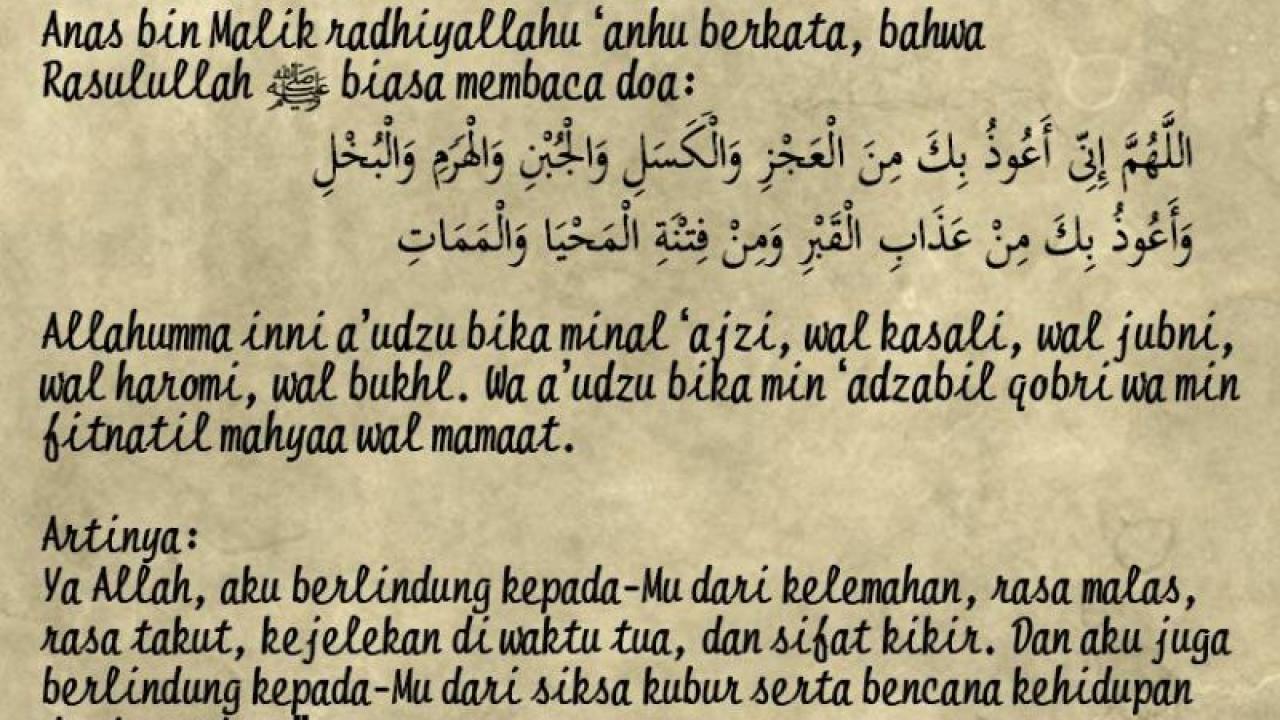 Anas bin Malik radhiyallahu ‘anhu berkata, bahwa
Rasulullah ﷺ biasa membaca doa:
اللَّهُمَّ إِنِّى أَعُوذُ بِكَ مِنَ الْعَجْزِ وَالْكَسَلِ وَالْجُبْنِ وَالْهَرَمِ وَالْبُخْلِ
وَأَعُوذُ بِكَ مِنْ عَذَابِ الْقَبْرِ وَمِنْ فِتْنَةِ الْمَحْيَا وَالْمَمَاتِ
Allahumma inni a’udzu bika minal ‘ajzi, wal kasali, wal jubni,
wal haromi, wal bukhl. Wa a’udzu bika min ‘adzabil qobri wa min
fitnatil mahyaa wal mamaat.
Artinya:
Ya Allah, aku berlindung kepada-Mu dari kelemahan, rasa malas,
rasa takut, kejelekan di waktu tua, dan sifat kikir. Dan aku juga
berlindung kepada-Mu dari siksa kubur serta bencana kehidupan